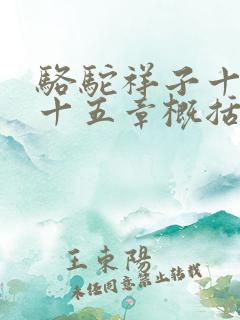 駱駝祥子十
十五章概括
王東陽
未经同意禁止转载